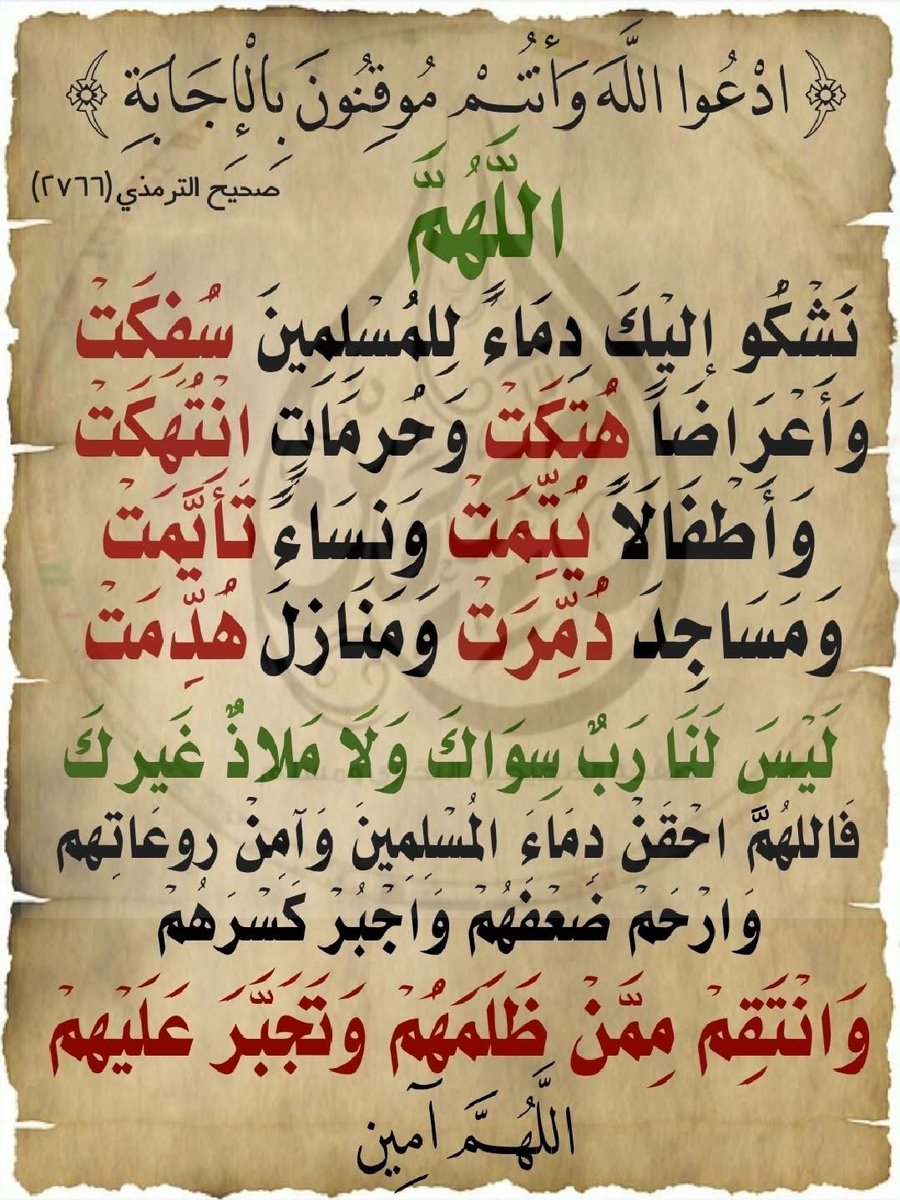 ﴿ ادْعُوا اللَّهَ وَأَنْتُمْ مُوقِنُونَ بِالْإِجَابَةِ ﴾
صَحيَح الترمذي (٢٧٦٦)
اللَّهُمَّ
نَشْكُو إليْكَ دِمَاءً لِلمُسْلِمِينَ سُفِكَتْ
وَأَعْرَاضَاً هُتِكَتْ وَحُرمَاتٍ انْتُهِكَتْ
وَأَطْفَالَاً يُتِّمَتْ وَنِسَاءً تَأيَّمَتْ
وَمَسَاجِدَ دُمِّرَتْ وَمَنَازلَ هُدِّمَتْ
لَيْسَ لَنَا رَبٌ سِوَاكَ وَلَا مَلاذٌ غَيركَ
فَاللهُمَّ احْقَنْ دِمَاءَ المُسْلِمِينَ وَآمِنْ روعَاتِهم
وَارْحَمْ ضَعْفَهُمْ وَاجْبُرْ كَسْرَهُمْ
وَانْتَقِمْ مِمَّنْ ظَلَمَهُمْ وَتَجَبَّرَ عَلَيْهمْ
اللَّهُمَّ آمِين